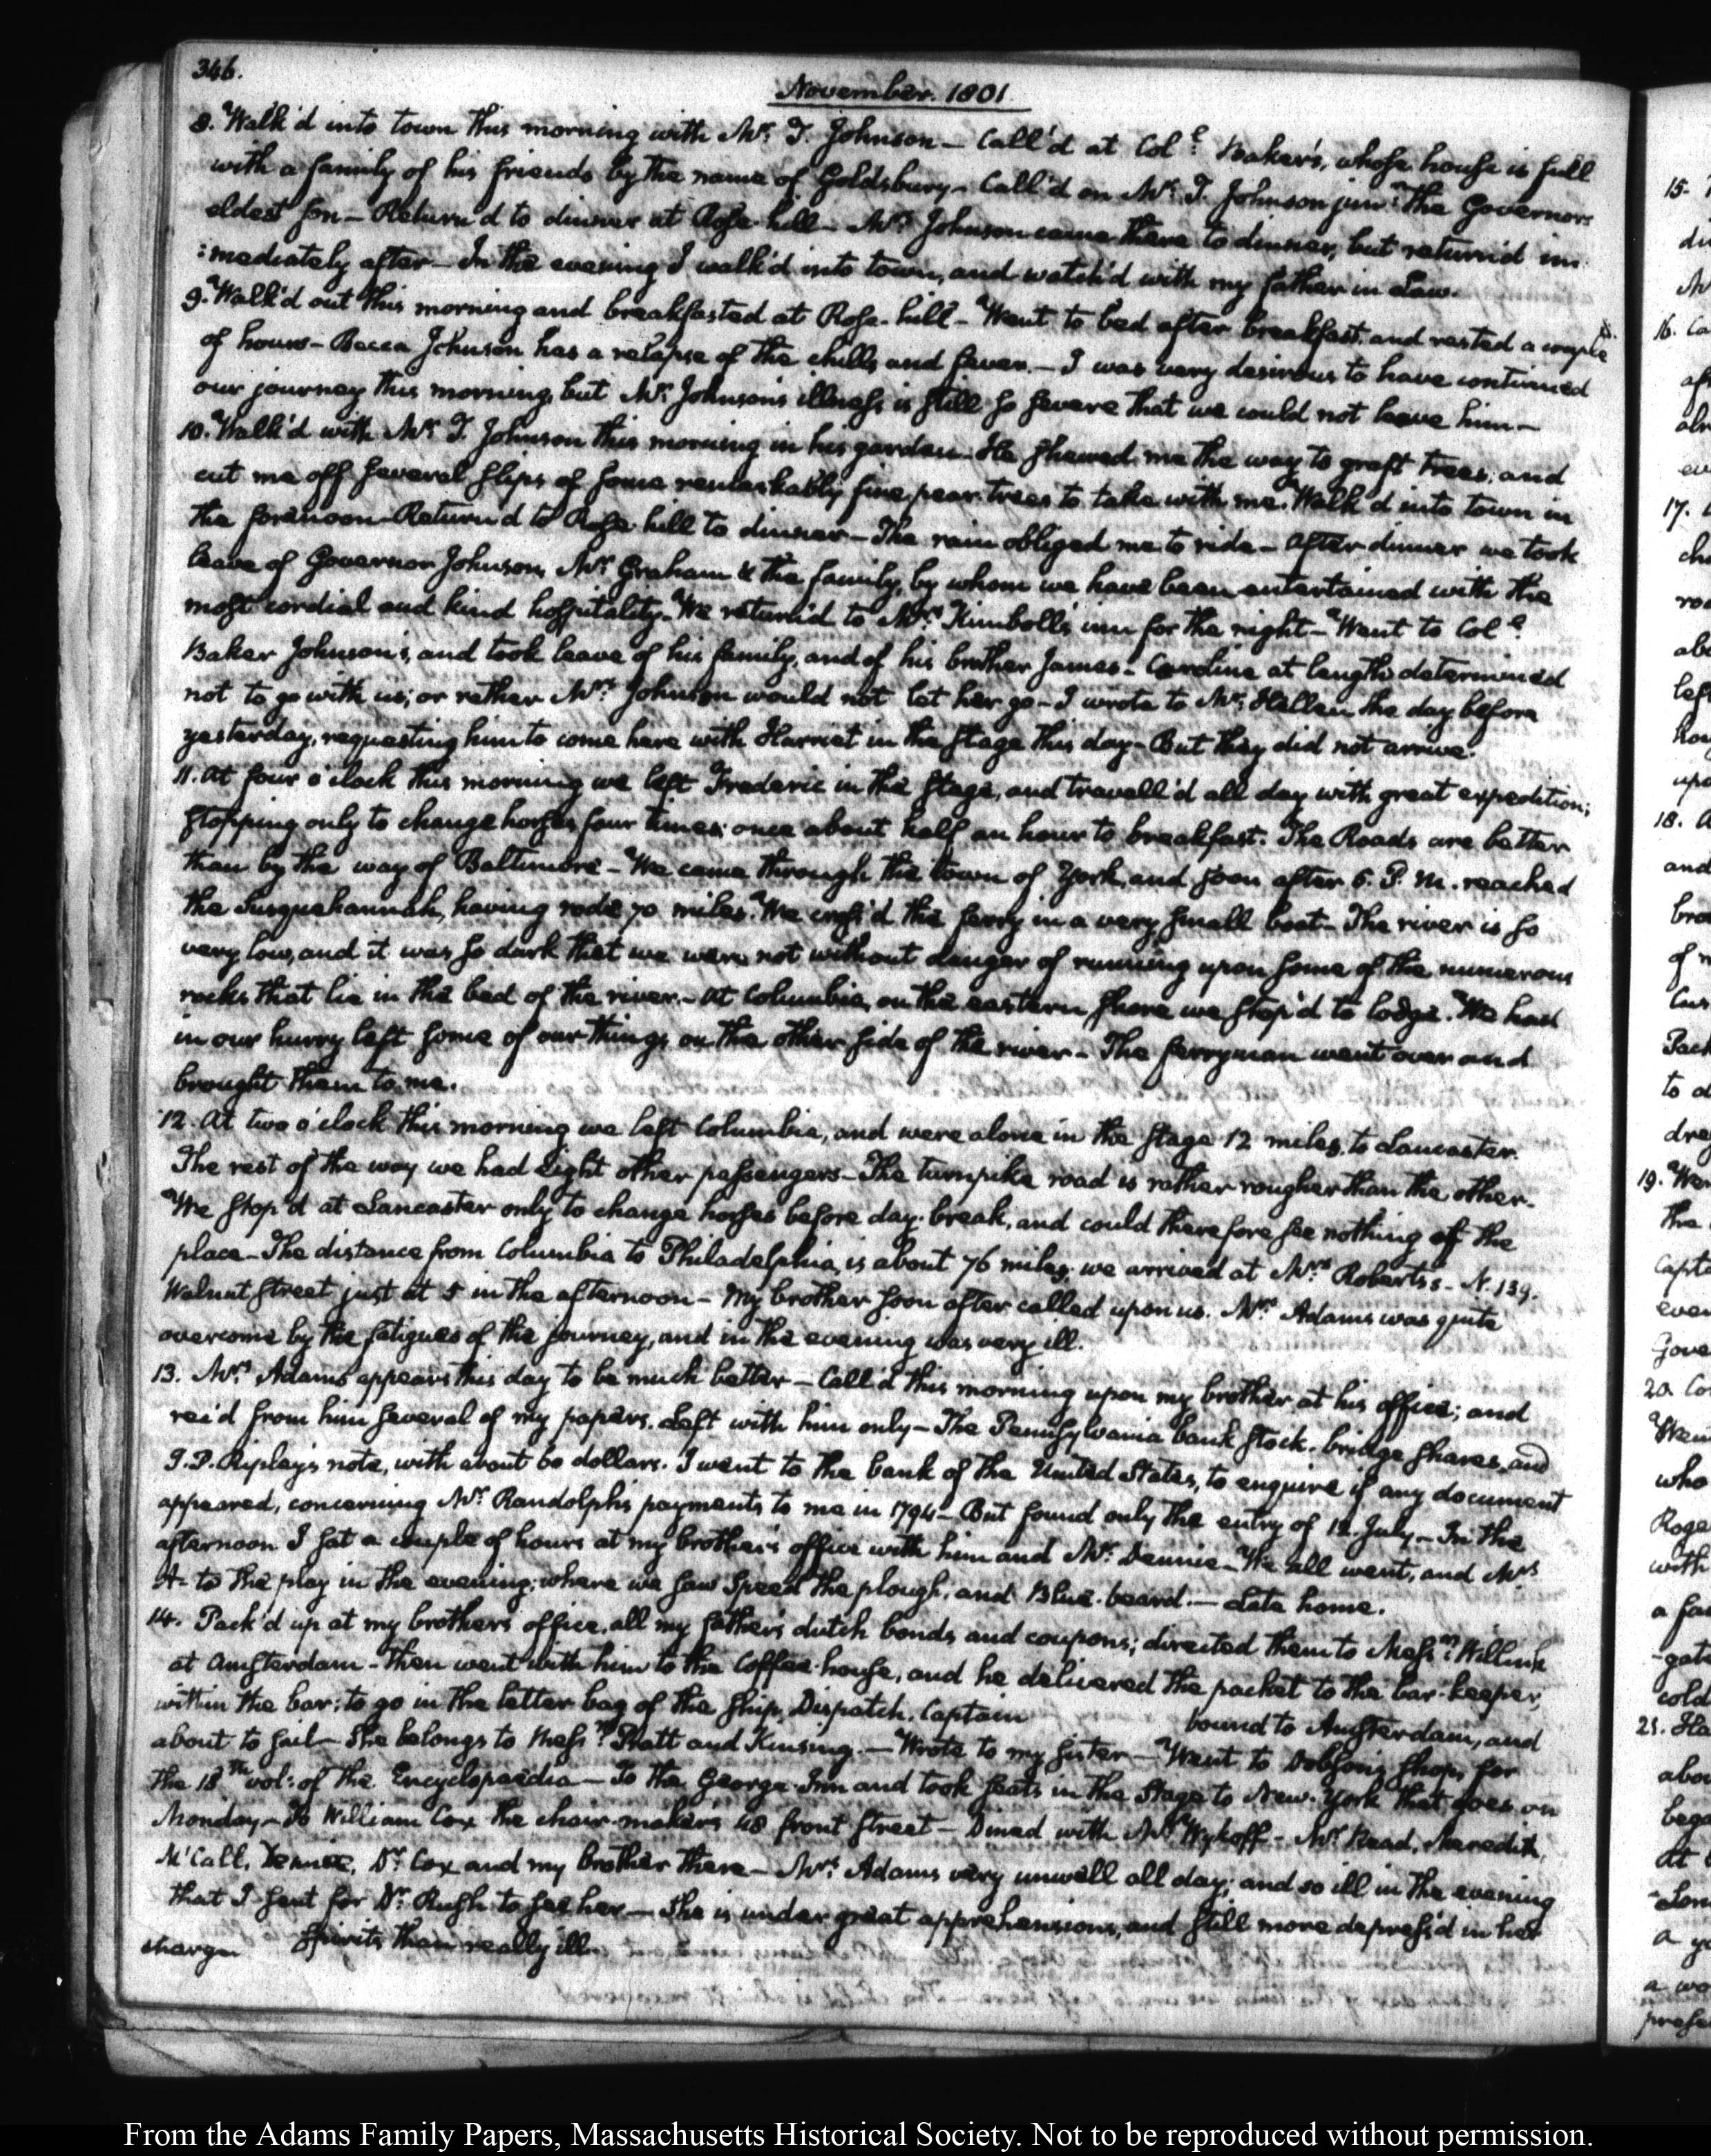 346.
November. 1801.
8. Walk'd into town this morning with Mr. T. Johnson — Call'd at Coll. Baker's, whose house is full
with a family of his friends by the name of Goldsbury — Call'd on Mr. T. Johnson junr. the Governors
eldest son — Return'd to dinner at Rose-hill — Mrs. Johnson came there to dinner, but returned im:
:mediately after — In the evening I walk'd into town, and watch'd with my father in Law.
9. Walk'd out this morning and breakfasted at Rose-hill — Went to bed after breakfast, and rested a couple
of hours — Becca Johnson has a relapse of the chills and fever. — I was very desirous to have continued
our journey this morning, but Mr. Johnson's illness is still so severe that we could not leave him —
10. Walk'd with Mr. T. Johnson this morning in his garden — He shewed me the way to graft trees, and
cut me off several slips of some remarkably fine pear trees to take with me. Walk'd into town in
the forenoon — Return'd to Rose-hill to dinner — The rain obliged me to ride — After dinner we took
leave of Governor Johnson, Mrs. Graham & the family, by whom we have been entertained with the
most cordial and kind hospitality — We return'd to Mrs. Kimboll's inn for the night — Went to Coll.
Baker Johnson's, and took leave of his family, and of his brother James — Caroline at length determined
not to go with us; or rather Mrs. Johnson would not let her go — I wrote to Mr. Hellen the day before
yesterday, requesting him to come here with Harriet in the stage this day — But they did not arrive.
11. At four o'clock this morning we left Frederic in the stage, and travell'd all day with great expedition;
stopping only to change horses four times; once about half an hour to breakfast. The Roads are better
than by the way of Baltimore — We came through the town of York, and soon after 6. P. M. reached
the Susquehannah, having rode 70 miles. We cross'd the ferry in a very small boat — The river is so
very low, and it was so dark that we were not without danger of running upon some of the numerous
rocks that lie in the bed of the river. — At Columbia, on the eastern shore we stop'd to lodge. We had
in our hurry left some of our things on the other side of the river — The ferryman went over and
brought them to me.
12. At two o'clock this morning we left Columbia, and were alone in the stage 12 miles, to Lancaster.
The rest of the way we had eight other passengers — The turnpike road is rather rougher than the other.
We stop'd at Lancaster only to change horses before day-break, and could therefore see nothing of the
place — The distance from Columbia to Philadelphia, is about 76 miles; we arrived at Mrs. Roberts's — N. 139.
Walnut Street just at 5 in the afternoon — My brother soon after called upon us. Mrs. Adams was quite
overcome by the fatigues of the journey, and in the evening was very ill.
13. Mrs. Adams appears this day to be much better — Call'd this morning upon my brother at his office; and
rec'd from him several of my papers. Left with him only — The Pennsylvania bank stock, bridge shares, and
J. P. Ripley's note, with about 60 dollars. I went to the bank of the United States, to enquire if any document
appeared, concerning Mr. Randolph's payments to me in 1794 — But found only the entry of 12. July — In the
afternoon I sat a couple of hours at my brother's office with him and Mr. Dennie — We all went, and Mrs.
A— to the play in the evening; where we saw Speed the plough, and Blue-beard. — Late home.
14. Pack'd up at my brother's office, all my father's dutch bonds and coupons; directed them to Messrs. Willink
at Amsterdam — Then went with him to the Coffee-house, and he delivered the packet to the bar-keeper,
within the bar; to go in the letter bag of the ship, Dispatch. Captain                bound to Amsterdam, and
about to sail — She belongs to Messrs. Pratt and Kinsing. — Wrote to my sister — Went to Dobson's shop, for
the 18th vol: of the Encyclopaedia — To the George Inn and took seats in the Stage to New-York that goes on
Monday — To William Cox the chair-maker's 48 front street — Dined with Mr. Wykoff — Mr. Read, Meredith,
McCall, Dennie, Dr. Cox and my brother there — Mrs. Adams very unwell all day; and so ill in the evening
that I sent for Dr. Rush to see her — She is under great apprehensions, and still more depress'd in her
charge.   spirits than really ill.
From the Adams Family Papers, Massachusetts Historical Society. Not to be reproduced without permission.